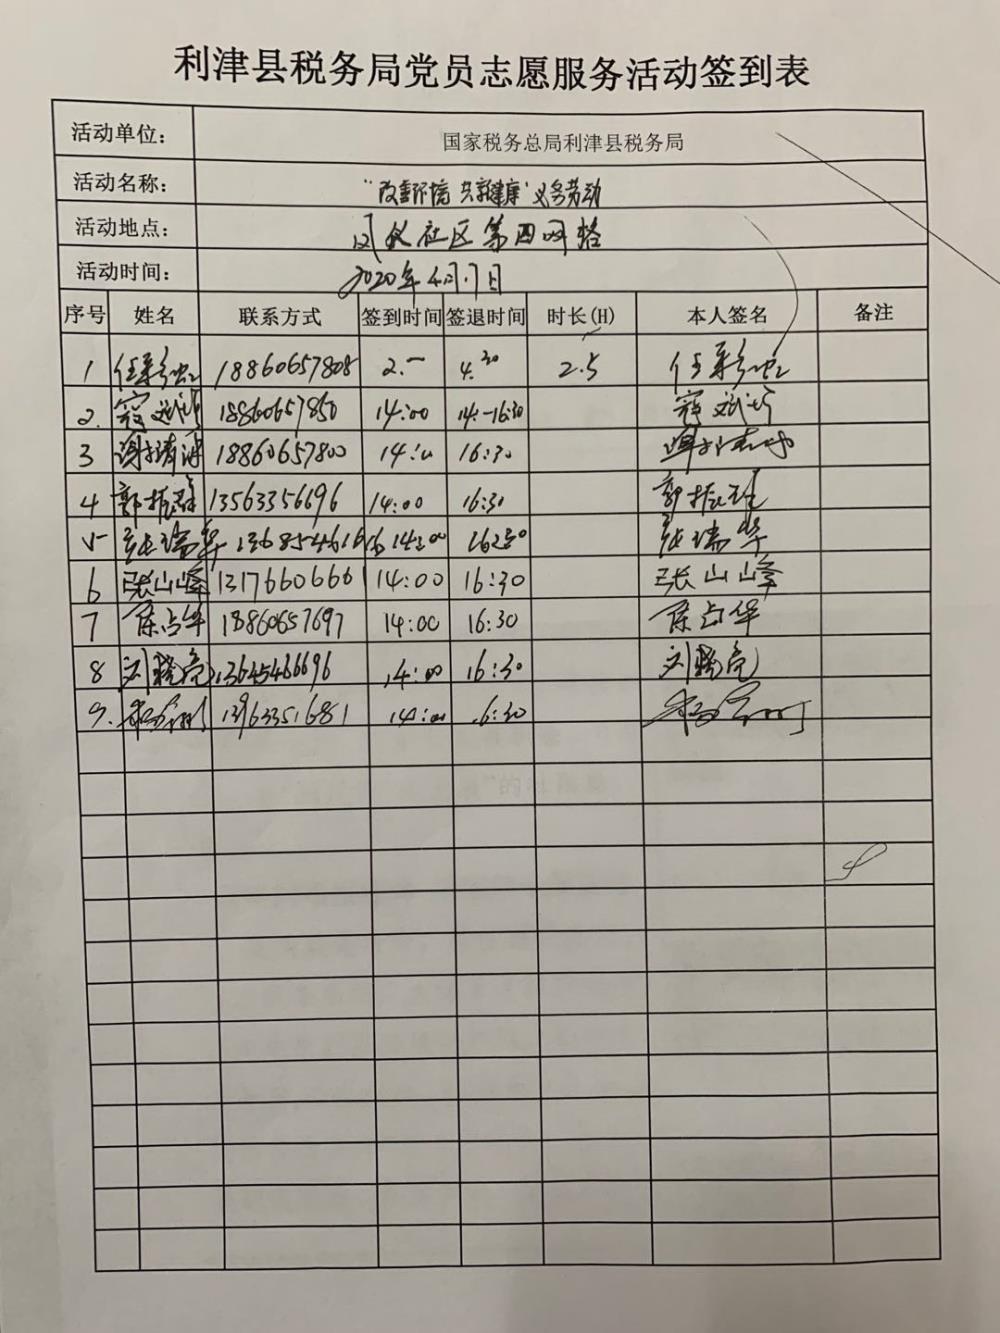 利津县税务局党员志愿服务活动签到表
活动单位： 国家税务总局利津县税务局
活动名称： “改善环境 共享健康”义务劳动
活动地点： 凤仪社区第四网格
活动时间： 2020年4月7日
序号 姓名 联系方式 签到时间 签退时间 时长(H) 本人签名 备注
1 任彩虹 18860657808 2.一 4.30 2.5 任彩虹
2. 寇 18860657850 14:00 14-16:30 寇
3 谢 18860657800 14:00 16:30
4 郭振 13563356696 14:00 16:30 郭振
5 张瑞华 13685461616 14:00 16:30 张瑞华
6 张山峰 1317660666 14:00 16:30 张山峰
7 陈占华 18860657697 14:00 16:30 陈占华
8 刘晓亮 13645466696 14:00 16:30 刘晓亮
9. 杨 13963351681 14:00 16:30 杨